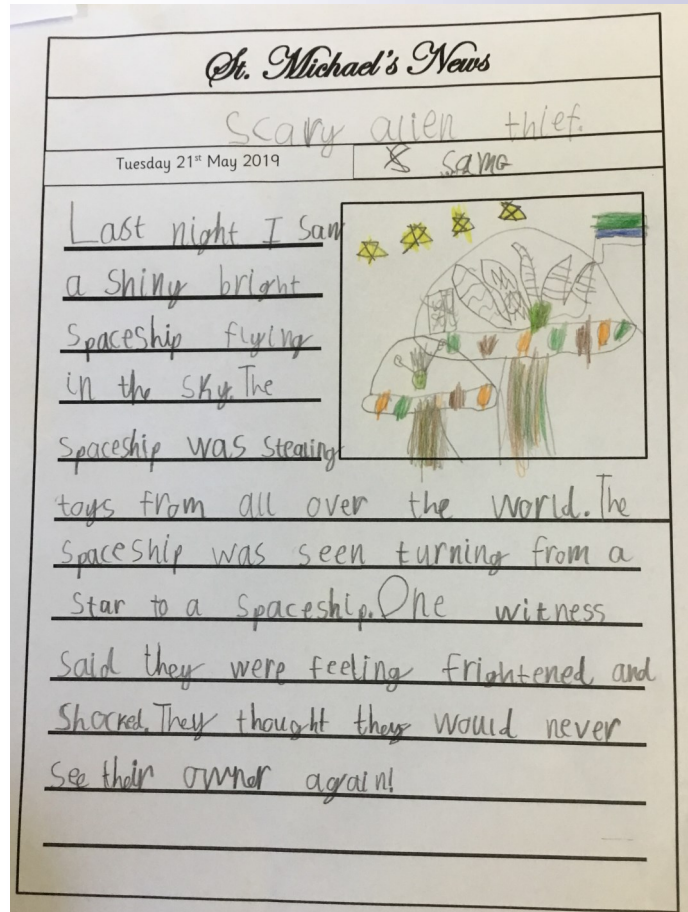 St. Michael's News
Scary alien thief.
Tuesday 21st May 2019
Last night I saw
a shiny bright
spaceship flying
in the sky. The
spaceship was stealing
toys from all over the world. The
spaceship was seen turning from a
star to a spaceship. One witness
said they were feeling frightened and
shocked. They thought they would never
see their owner again!